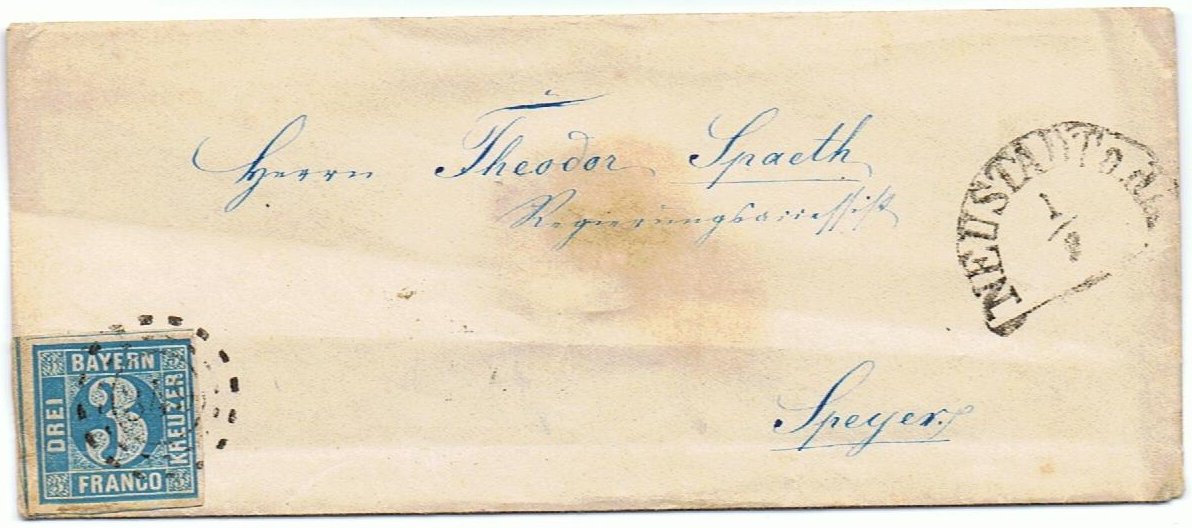 Herrn Theodor Spaeth
Regierungsaccessist
Speyer.
NEUSTADT
1/9
BAYERN
DREI
3
KREUZER
FRANCO